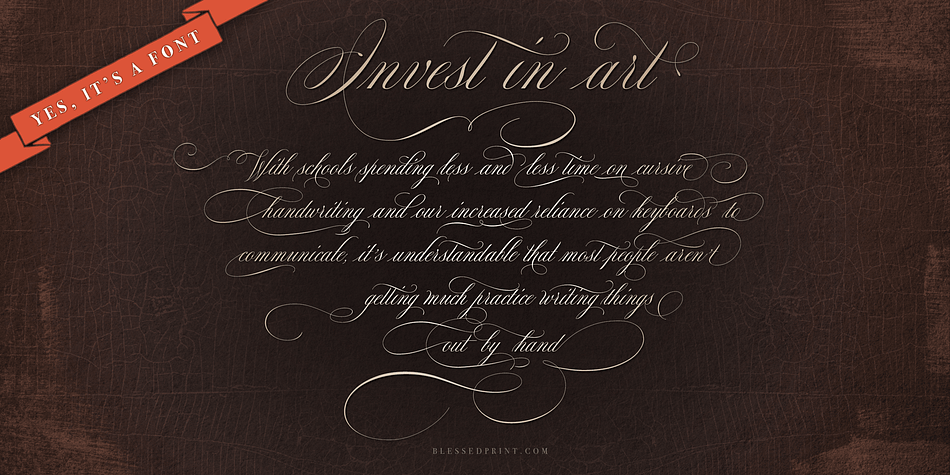 YES, IT'S A FONT
Invest in art
With schools spending less and less time on cursive
handwriting and our increased reliance on keyboards to
communicate, it's understandable that most people aren't
getting much practice writing things
out by hand
BLESSEDPRINT.COM